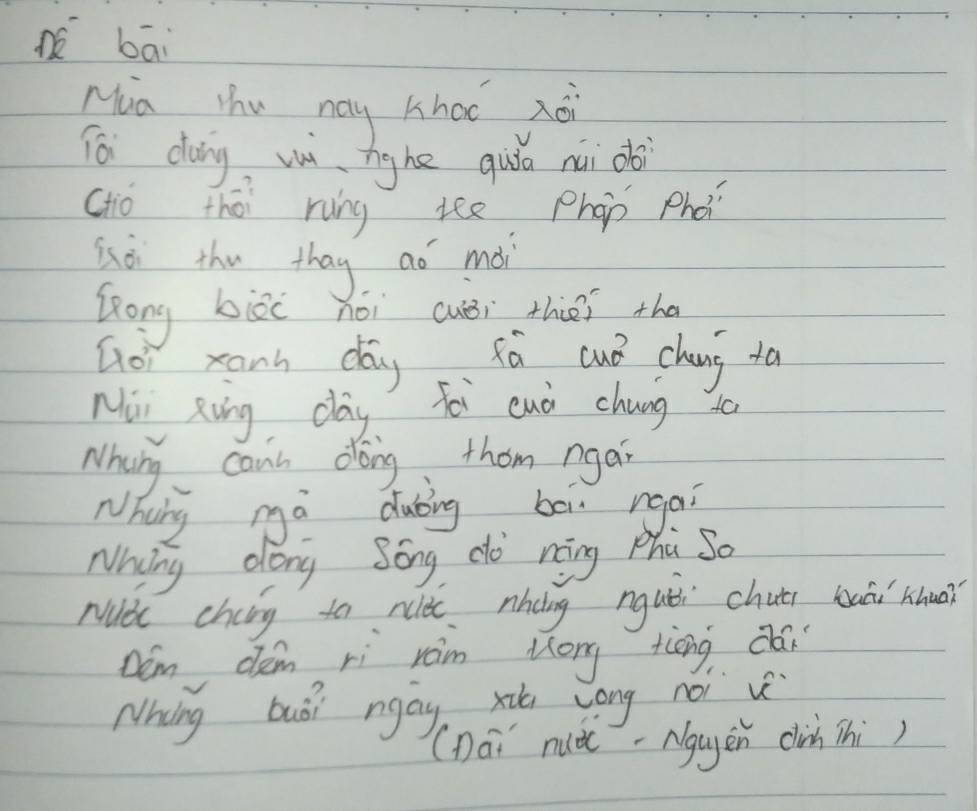 Đề bài
Mùa thu nay khác rồi
Tôi đứng vui nghe giữa núi đồi
Gió thổi rừng tre phấp phới
Trời thu thay áo mới
Trong biếc nói cười thiết tha
Trời xanh đây là của chúng ta
Núi rừng đây là của chúng ta
Những cánh đồng thơm ngát
Những ngả đường bát ngát
Những dòng sông đỏ nặng phù sa
Nước chúng ta nước những người chưa khuất
Đêm đêm rì rầm trong tiếng đất
Những buổi ngày xưa vọng nói về
(Đất nước - Nguyễn đình Thi)